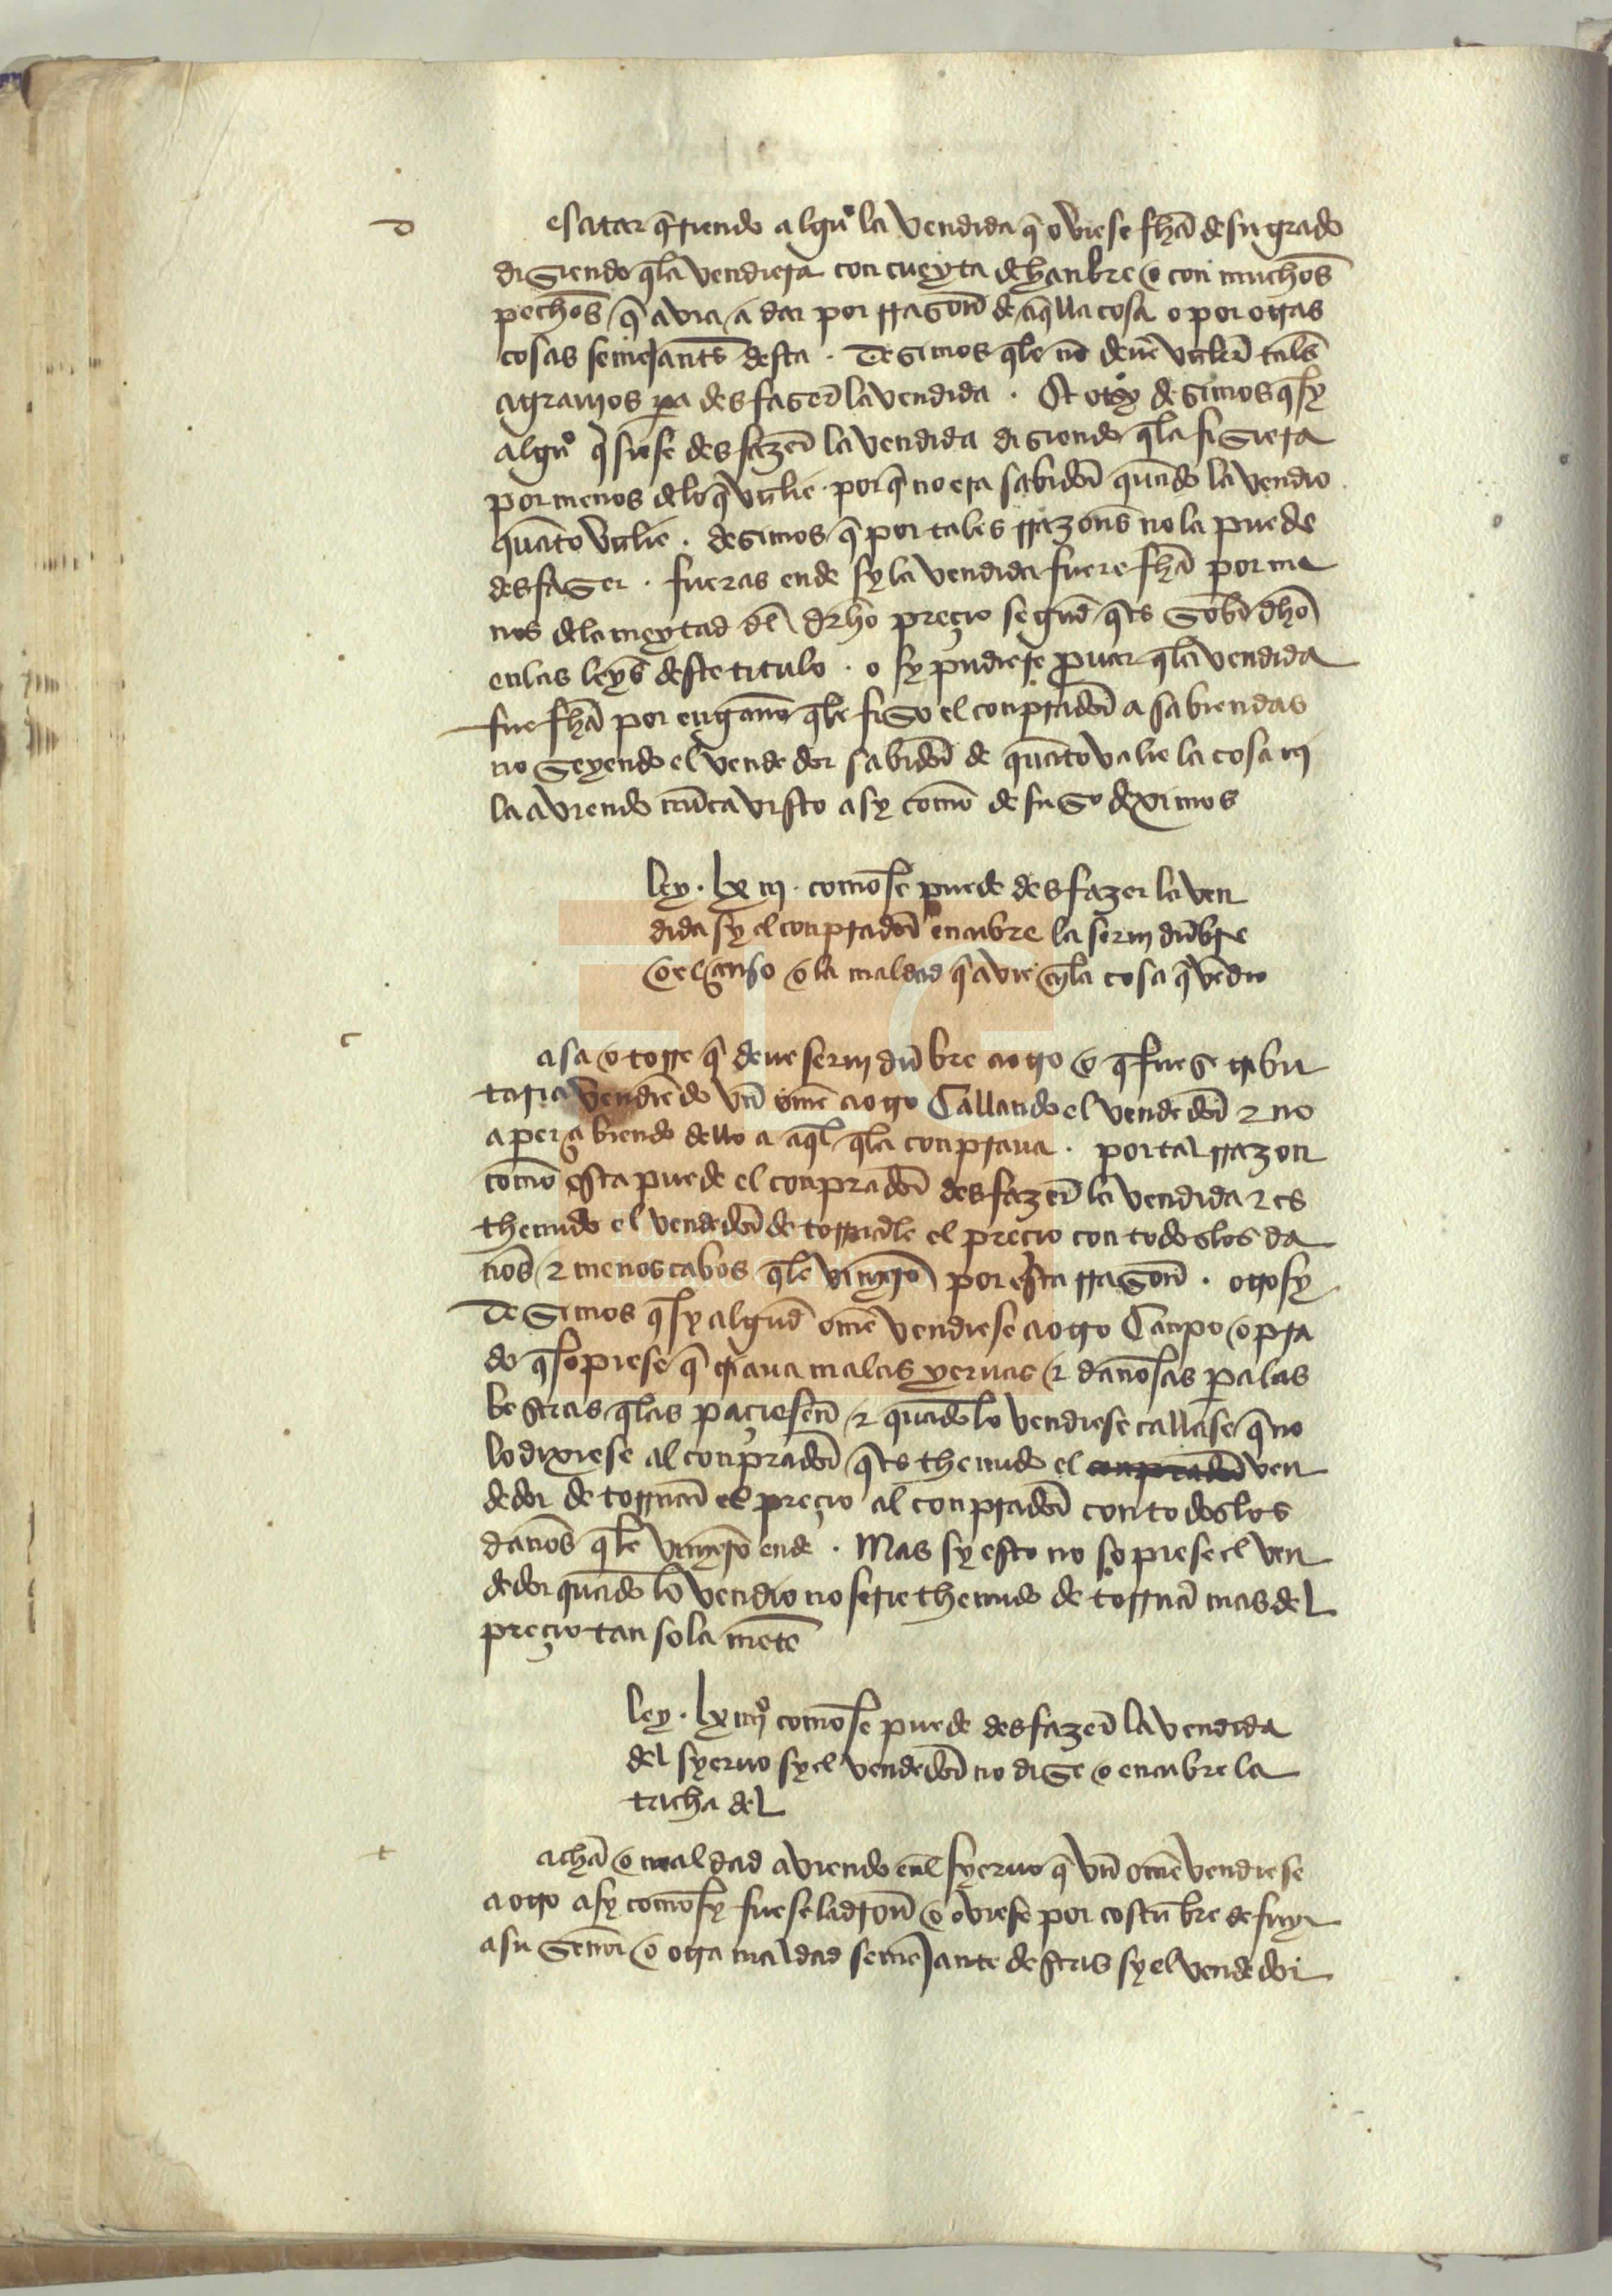 d
esatar q̃riendo algũo la vendida q̃ oviese fha de su grado
disiendo q̃la vendiera con cueyta de hanbre o con muchos
pechos q̃ avia a dar por rrason de aq̃lla cosa o por otras
cosas semejantes desta . Desimos q̃le no deuẽ valer tales
agrauios pa desfaser la vendida . Et otrosy desimos q̃ sy
algũo q̃siese desfazer la vendida disiendo q̃la fisiera
por menos delo q̃ valie porq̃ no era sabidor quãdo la vendio
quãto valie . desimos q̃ por tales rrazones no la puede
desfaser . fueras ende sy la vendida fuere fha por me
nos dela meytad del drho preçio segũd q̃ es sobre dho
enlas leyes deste titulo . o sy pudiere prouar q̃la vendida
fue fha por engano q̃le fiso el conprador a sabiendas
no seyendo el vendedor sabidor de quãto valie la cosa ni
la aviendo nũca visto asy como de suso deximos
ley . lxiij . como se puede desfazer la ven
dida sy el conprador encubre la seruidũbre
o el çenso o la maldad q̃ avie enla cosa q̃ vẽdio
c
asa o torre q̃ deue seruidũbre a otro o q̃ fuese tribu
taria vendiẽdo vn ome a otro Callando el vendedor & no
aperçibiendo dello a aq̃l q̃la conpraua . por tal rrazon
como esta puede el conprador desfazer la vendida & es
thenudo el vendedor de tornarle el preçio con todos los da
nos & menoscabos q̃le vinierõ por esta rrason . otrosy
Desimos q̃ sy algund ome vendiese a otro Canpo o pra
do q̃ sopiese q̃ criaua malas yeruas & danosas pa las
bestias q̃las paçiesen & quãdo lo vendiese callase q̃ no
lo dixiese al conprador q̃ es thenudo el conprador ven
dedor de tornar el preçio al conprador con todos los
danos q̃le vinierõ ende . Mas sy esto no sopiese el ven
dedor quãdo lo vendio no serie thenudo de tornar mas del
preçio tan sola mẽte
ley . lxiiijo como se puede desfazer la vendida
del syeruo sy el vendedor no dise o encubre la
tacha del
t
acha o maldad aviendo enel syeruo q̃ vn ome vendiese
a otro asy como sy fuese ladron o oviese por costũbre de fuyr
a su senor o otra maldad semejante destas sy el vendedor